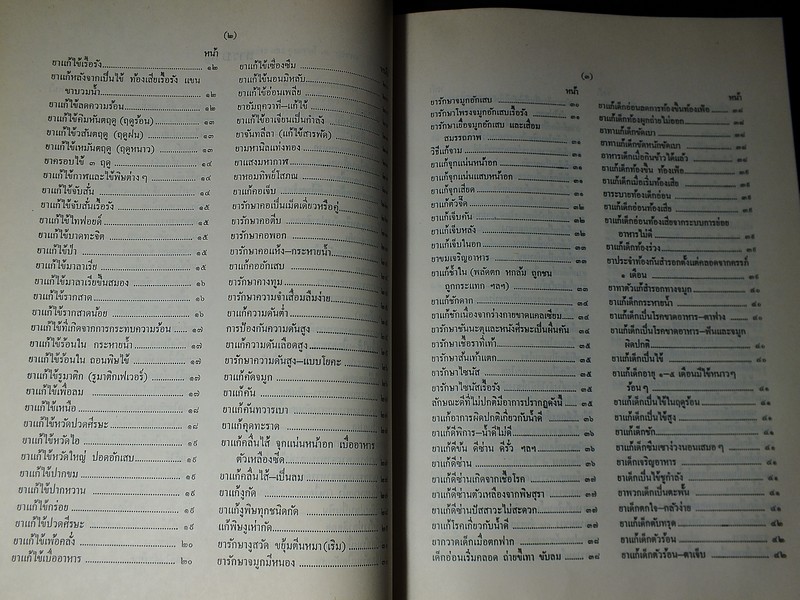 (๒)
หน้า
ยาแก้ไข้เรื้อรัง ๑๒
ยาแก้หลังจากเป็นไข้ ท้องเสียเรื้อรัง แขน
ขาบวมน้ำ ๑๒
ยาแก้ไข้ลดความร้อน ๑๒
ยาแก้ไข้คิมหันตฤดู (ฤดูร้อน) ๑๓
ยาแก้ไข้วสันตฤดู (ฤดูฝน) ๑๓
ยาแก้ไข้เหมันตฤดู (ฤดูหนาว) ๑๓
ยาครอบไข้ ๓ ฤดู ๑๔
ยาแก้ไข้กาฬและไข้พิษต่างๆ ๑๔
ยาแก้ไข้จับสั่น ๑๔
ยาแก้ไข้จับสั่นเรื้อรัง ๑๕
ยาแก้ไข้ไทฟอยด์ ๑๕
ยาแก้ไข้บาดทะจิต ๑๕
ยาแก้ไข้ป่า ๑๕
ยาแก้ไข้มาลาเรีย ๑๕
ยาแก้ไข้มาลาเรียขึ้นสมอง ๑๖
ยาแก้ไข้รากสาด ๑๖
ยาแก้ไข้รากสาดน้อย ๑๖
ยาแก้ไข้ที่เกิดจากการกระทบความร้อน ๑๗
ยาแก้ไข้ร้อนใน กระหายน้ำ ๑๗
ยาแก้ไข้ร้อนใน ถอนพิษไข้ ๑๗
ยาแก้ไข้รูมาติก (รูมาติกเฟเวอร์) ๑๗
ยาแก้ไข้เพื่อลม ๑๘
ยาแก้ไข้เหนือ ๑๘
ยาแก้ไข้หวัดปวดศีรษะ ๑๘
ยาแก้ไข้หวัดไอ ๑๙
ยาแก้ไข้หวัดใหญ่ ปอดอักเสบ ๑๙
ยาแก้ไข้ปากขม ๑๙
ยาแก้ไข้ปากหวาน ๑๙
ยาแก้ไข้กร่อย ๑๙
ยาแก้ไข้ปวดศีรษะ ๑๙
ยาแก้ไข้เพ้อคลั่ง ๒๐
ยาแก้ไข้เบื่ออาหาร ๒๐
ยาแก้ไข้เซื่องซึม
ยาแก้ไข้นอนมิหลับ
ยาแก้ไข้อ่อนเพลีย
ยาอัมฤควาที-แก้ไข้
ยาแก้ไข้อาเจียนเป็นกำลัง
ยาจันทลีลา (แก้ไข้สารพัด)
ยามหานิลแท่งทอง
ยาแสงมหากาฬ
ยาหอมทิพย์โสภณ
ยาแก้คอเจ็บ
ยารักษาคอเป็นเม็ดเดี่ยวหรือคู่
ยารักษาคอตีบ
ยารักษาคอพอก
ยารักษาคอแห้ง-กระหายน้ำ
ยาแก้คออักเสบ
ยารักษาคางทูม
ยารักษาความจำเสื่อมลืมง่าย
ยาแก้ความดันต่ำ
การป้องกันความดันสูง
ยาแก้ความดันเลือดสูง
ยารักษาความดันสูง-แบบโยคะ
ยาแก้คัดจมูก
ยาแก้คัน
ยาแก้คันทวารเบา
ยาแก้คุดทะราด
ยาแก้คลื่นไส้ จุกแน่นหน้อก เบื่ออาหาร
ตัวเหลืองซีด
ยาแก้คลื่นไส้-เป็นลม
ยาแก้งูกัด
ยาแก้งูพิษทุกชนิดกัด
แก้พิษงูเห่ากัด
ยารักษางูสวัด ขยุ้มตีนหมา(เริม)
ยารักษาจมูกมีหนอง
(๓)
หน้า
ยารักษาจมูกอักเสบ ๓๑
ยารักษาโพรงจมูกอักเสบเรื้อรัง ๓๑
ยารักษาเยื่อจมูกอักเสบ และเสื่อม
สมรรถภาพ ๓๑
วิธีแก้จาม ๓๑
ยาแก้จุกแน่นหน้อก ๓๑
ยาแก้จุกแน่นแสบหน้อก ๓๑
ยาแก้จุกเสียด ๓๑
ยาแก้ตัวจี๊ด ๓๒
ยาแก้เจ็บคัน ๓๒
ยาแก้เจ็บหลัง ๓๒
ยาแก้เจ็บในอก ๓๓
ยาขมเจริญอาหาร ๓๓
ยาแก้ช้ำใน (พลัดตก หกล้ม ถูกชน
ถูกกระแทก ฯลฯ) ๓๓
ยาแก้ชักดาก ๓๔
ยาแก้ชักเนื่องจากร่างกายขาดแคลเซียม ๓๔
ยารักษาชันนะตุและหนังศีรษะเป็นผื่นคัน ๓๔
ยารักษาเชื้อราที่เท้า ๓๕
ยารักษาส้นเท้าแตก ๓๕
ยารักษาไซนัส ๓๕
ยารักษาไซนัสเรื้อรัง ๓๕
ลักษณะดีที่ไม่ปกติมีอาการปรากฏดังนี้ ๓๕
ยาแก้อาการผิดปกติเกี่ยวกับน้ำดี ๓๖
ยาแก้ดีพิการ-น้ำดีไม่ดี ๓๖
ยาแก้ดีขึ้น ดีซ่าน ดีรั่ว ฯลฯ ๓๖
ยาแก้ดีซ่าน ๓๖
ยาแก้ดีซ่านเกิดจากเชื้อโรค ๓๗
ยาแก้ดีซ่านตัวเหลืองจากพิษสุรา ๓๗
ยาแก้ดีซ่านปัสสาวะไม่สะดวก ๓๗
ยาแก้โรคเกี่ยวกับน้ำดี ๓๗
ยากวาดเด็กเมื่อตกฟาก ๓๘
เด็กอ่อนเริ่มคลอด ถ่ายขี้เทา ขับลม ๓๘
หน้า
ยาแก้เด็กอ่อนลดการท้องขึ้นท้องเฟ้อ ๓๘
ยาแก้เด็กท้องผูกถ่ายไม่ออก ๓๘
ยาทาแก้เด็กขัดเบา ๓๘
ยาทาแก้เด็กขัดหนักขัดเบา ๓๘
ยาทารเด็กเมื่อกินข้าวได้แล้ว ๓๘
ยาแก้เด็กท้องขึ้น ท้องเฟ้อ ๓๙
ยาแก้เด็กเมื่อเริ่มท้องเสีย ๓๙
ยาระบายท้องเด็กอ่อน ๓๙
ยาแก้เด็กอ่อนท้องเสีย ๓๙
ยาแก้เด็กอ่อนท้องเสียจากระบบการย่อย
อาหารไม่ดี ๓๙
ยาแก้เด็กท้องร่วง ๓๙
ยาประจำท้องกันสำรอกตั้งแต่คลอดจากครรภ์
๑ เดือน ๓๙
ยาทาตัวแก้สำรอกทางจมูก ๔๐
ยาแก้เด็กกระหายน้ำ ๔๐
ยาแก้เด็กเป็นโรคขาดอาหาร-ตาฟาง ๔๐
ยาแก้เด็กเป็นโรคขาดอาหาร-ตีนและจมูก
ผิดปกติ ๔๐
ยาแก้เด็กเป็นไข้ ๔๐
ยาแก้เด็กอายุ ๑-๕ เดือนมีไข้หนาวๆ
ร้อนๆ ๔๑
ยาแก้เด็กเป็นไข้ในฤดูร้อน ๔๑
ยาแก้เด็กเป็นไข้สูง ๔๑
ยาแก้เด็กชัก ๔๑
ยาแก้เด็กซึมเซาง่วงนอนเสมอๆ ๔๑
ยาเด็กเจริญอาหาร ๔๑
ยาเด็กเป็นไข้ชูกำลัง ๔๑
ยาพวกเด็กเป็นตะพั้น ๔๑
ยาเด็กตกใจ-กลัวง่าย ๔๑
ยาแก้เด็กตับทรุด ๔๒
ยาแก้เด็กตัวร้อน ๔๒
ยาแก้เด็กตัวร้อน-ตาเจ็บ ๔๒